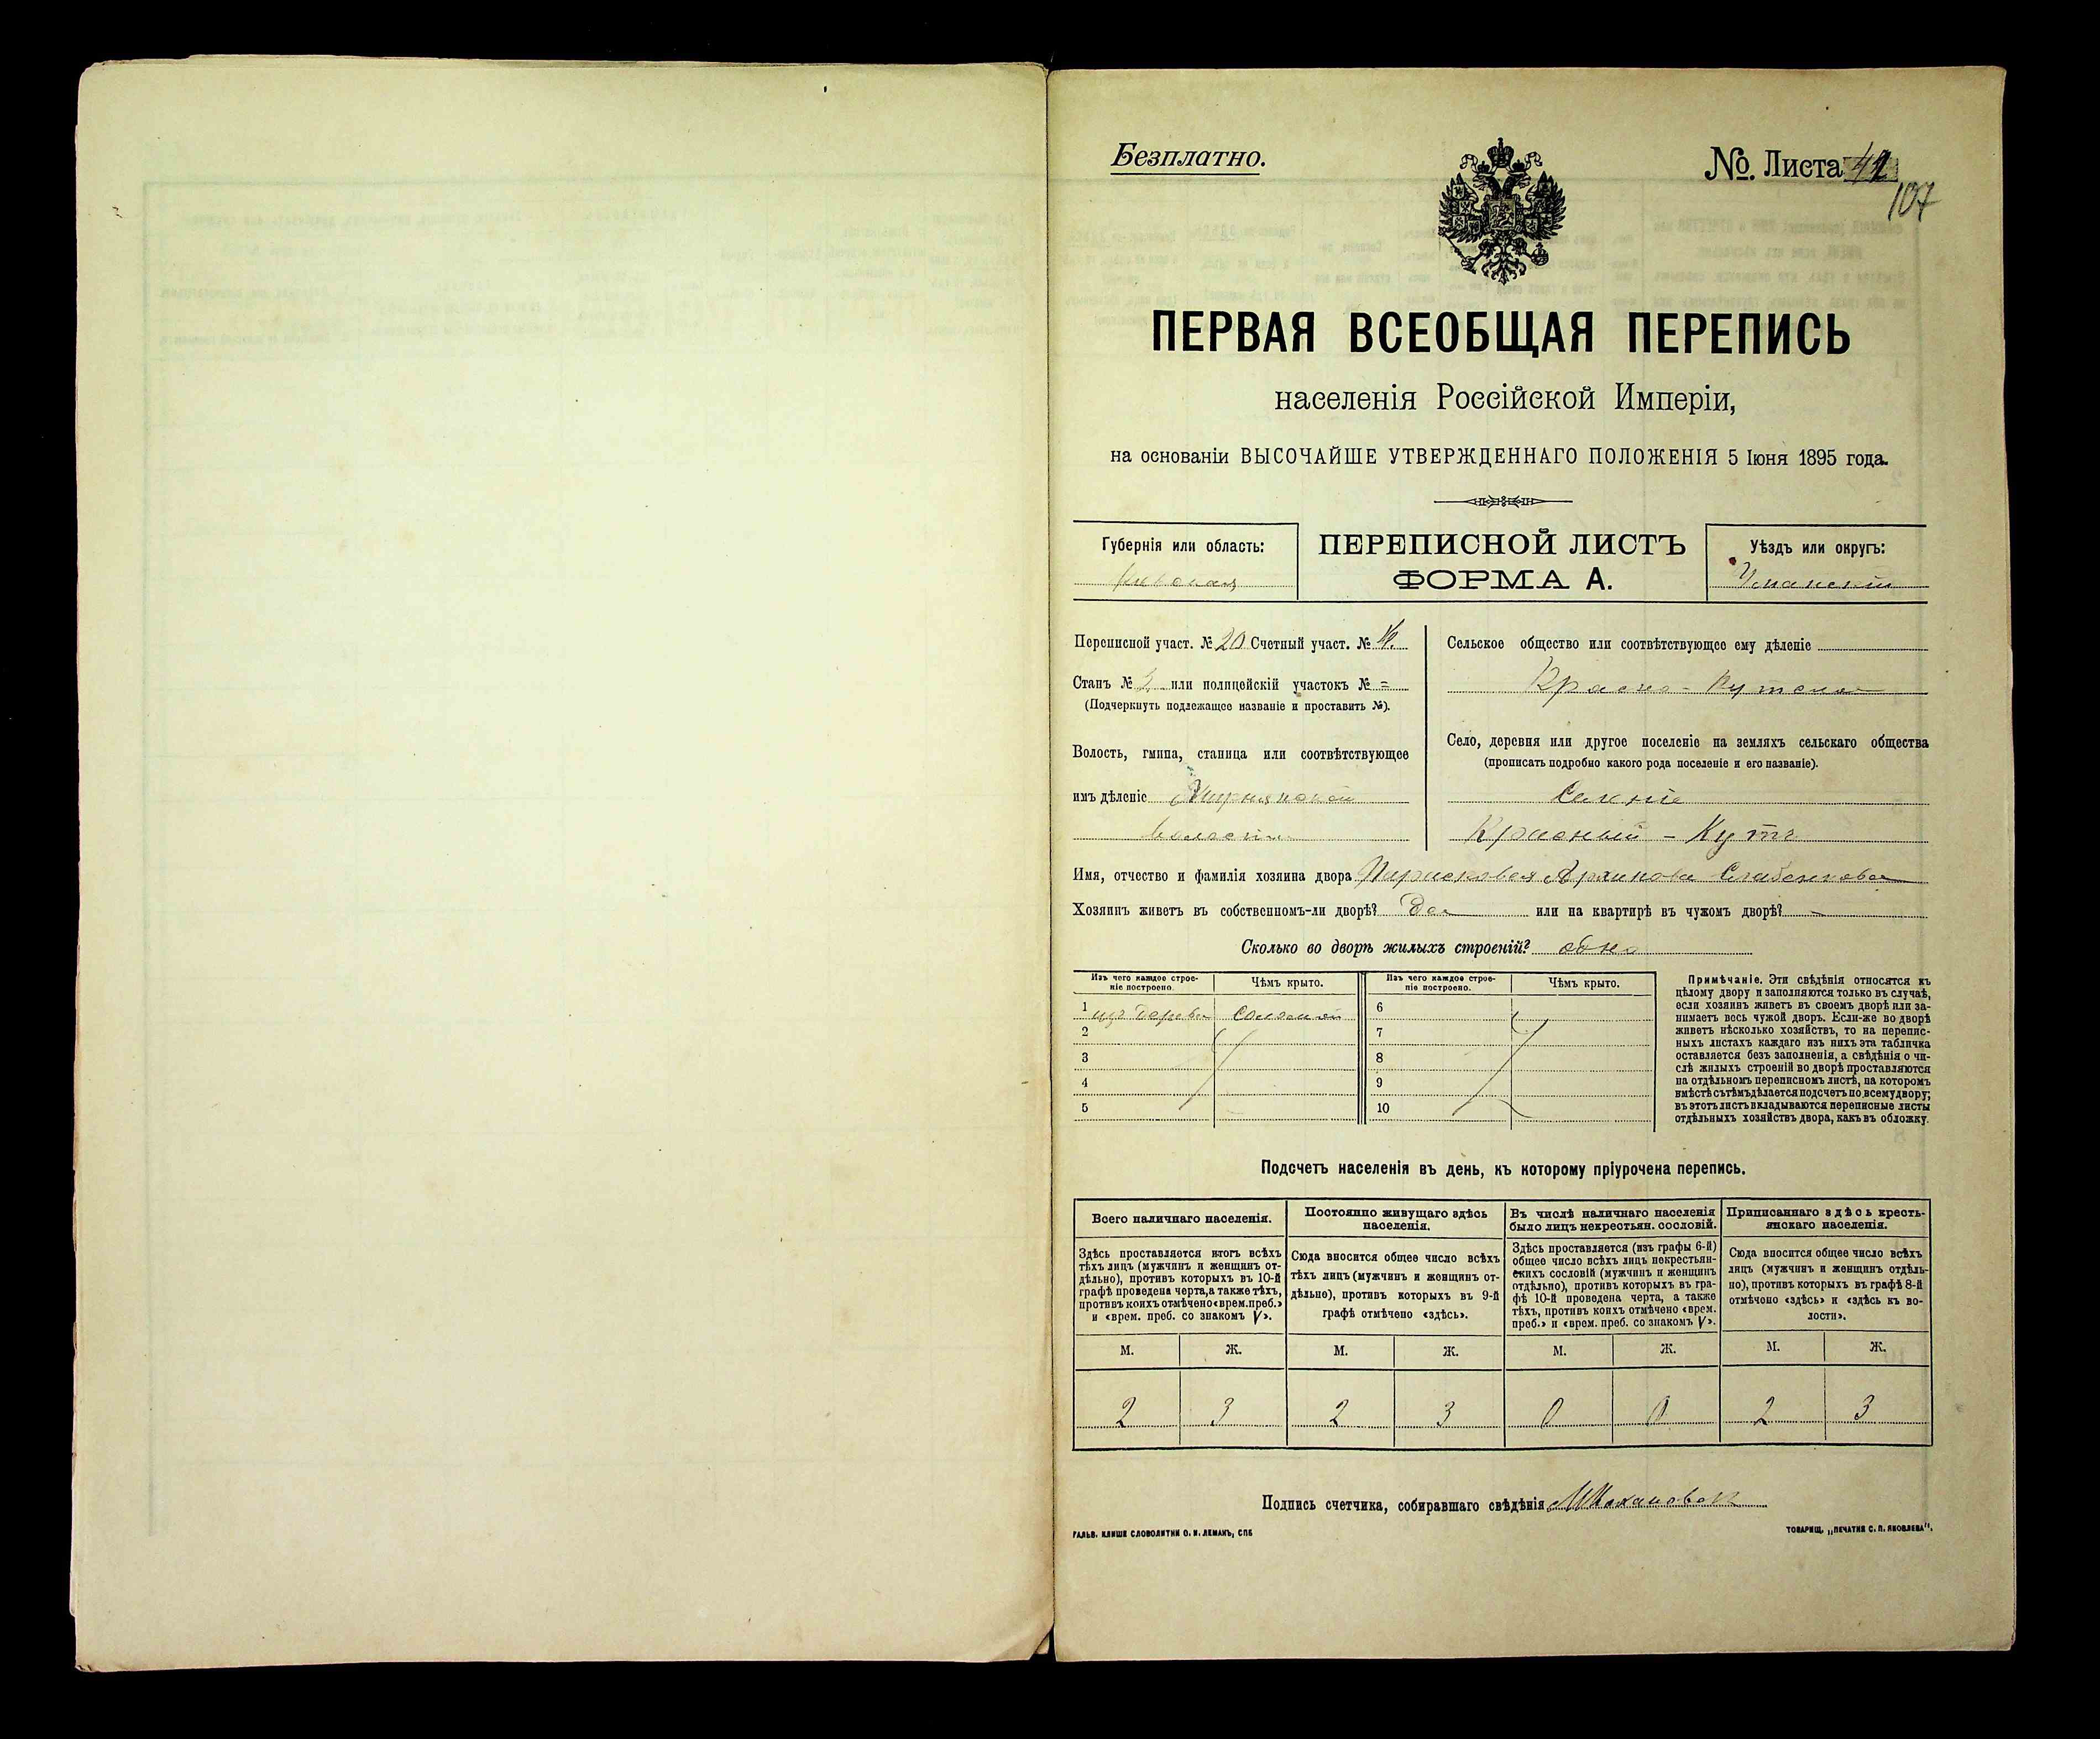 Безплатно.
№. Листа 42
107
ПЕРВАЯ ВСЕОБЩАЯ ПЕРЕПИСЬ
населенія Россійской Имперіи,
на основаніи ВЫСОЧАЙШЕ УТВЕРЖДЕННАГО ПОЛОЖЕНІЯ 5 Іюня 1895 года.
Губернія или область:
Кіевская
ПЕРЕПИСНОЙ ЛИСТЪ
ФОРМА А.
Уѣздъ или округъ:
Уманскій
Переписной участ. № 20 Счетный участ. №
Станъ № или полицейскій участокъ № =
(Подчеркнуть подлежащее названіе и проставить №).
Волость, гмина, станица или соотвѣтствующее
имъ дѣленіе
волости
Сельское общество или соотвѣтствующее ему дѣленіе
Красно-Кутское
Село, деревня или другое поселеніе на земляхъ сельскаго общества
(прописать подробно какого рода поселеніе и его названіе).
Селеніе
Красный-Кутъ
Имя, отчество и фамилія хозяина двора Парасковея Архипова Слабенкова
Хозяинъ живетъ въ собственномъ-ли дворѣ? Да или на квартирѣ въ чужомъ дворѣ? –
Сколько во дворѣ жилыхъ строеній? одно
Изъ чего каждое строеніе построено.
Чѣмъ крыто.
Изъ чего каждое строеніе построено.
Чѣмъ крыто.
1 изъ дерева соломой
2
3
4
5
6
7
8
9
10
Примѣчаніе. Эти свѣдѣнія относятся къ
цѣлому двору и заполняются только въ случаѣ,
если хозяинъ живетъ въ своемъ дворѣ или за-
нимаетъ весь чужой дворъ. Если-же во дворѣ
живетъ нѣсколько хозяйствъ, то на перепис-
ныхъ листахъ каждаго изъ нихъ эта табличка
оставляется безъ заполненія, а свѣдѣнія о чи-
слѣ жилыхъ строеній во дворѣ проставляются
на отдѣльномъ переписномъ листѣ, на которомъ
вмѣстѣ съ тѣмъ дѣлается подсчетъ по всему двору;
въ этотъ листъ вкладываются переписные листы
отдѣльныхъ хозяйствъ двора, какъ въ обложку.
Подсчетъ населенія въ день, къ которому пріурочена перепись.
Всего наличнаго населенія.
Здѣсь проставляется итогъ всѣхъ
тѣхъ лицъ (мужчинъ и женщинъ от-
дѣльно), противъ которыхъ въ 10-й
графѣ проведена черта, а также тѣхъ,
противъ коихъ отмѣчено «врем. преб.»
и «врем. преб. со знакомъ V».
Постоянно живущаго здѣсь
населенія.
Сюда вносится общее число всѣхъ
тѣхъ лицъ (мужчинъ и женщинъ от-
дѣльно), противъ которыхъ въ 9-й
графѣ отмѣчено «здѣсь».
Въ числѣ наличнаго населенія
было лицъ некрестьян. сословій.
Здѣсь проставляется (изъ графы 6-й)
общее число всѣхъ лицъ некрестьян-
скихъ сословій (мужчинъ и женщинъ
отдѣльно), противъ которыхъ въ гра-
фѣ 10-й проведена черта, а также
тѣхъ, противъ коихъ отмѣчено «врем.
преб.» и «врем. преб. со знакомъ V».
Приписаннаго здѣсь кресть-
янскаго населенія.
Сюда вносится общее число всѣхъ
лицъ (мужчинъ и женщинъ отдѣль-
но), противъ которыхъ въ графѣ 8-й
отмѣчено «здѣсь» и «здѣсь къ во-
лости».
М. Ж. М. Ж. М. Ж. М. Ж.
2 3 2 3 0 0 2 3
Подпись счетчика, собиравшаго свѣдѣнія
ГАЛЬВ. КЛИШЕ СЛОВОЛИТНИ О. И. ЛЕМАНЪ, СПБ
ТОВАРИЩ. „ПЕЧАТНЯ С. П. ЯКОВЛЕВА“.